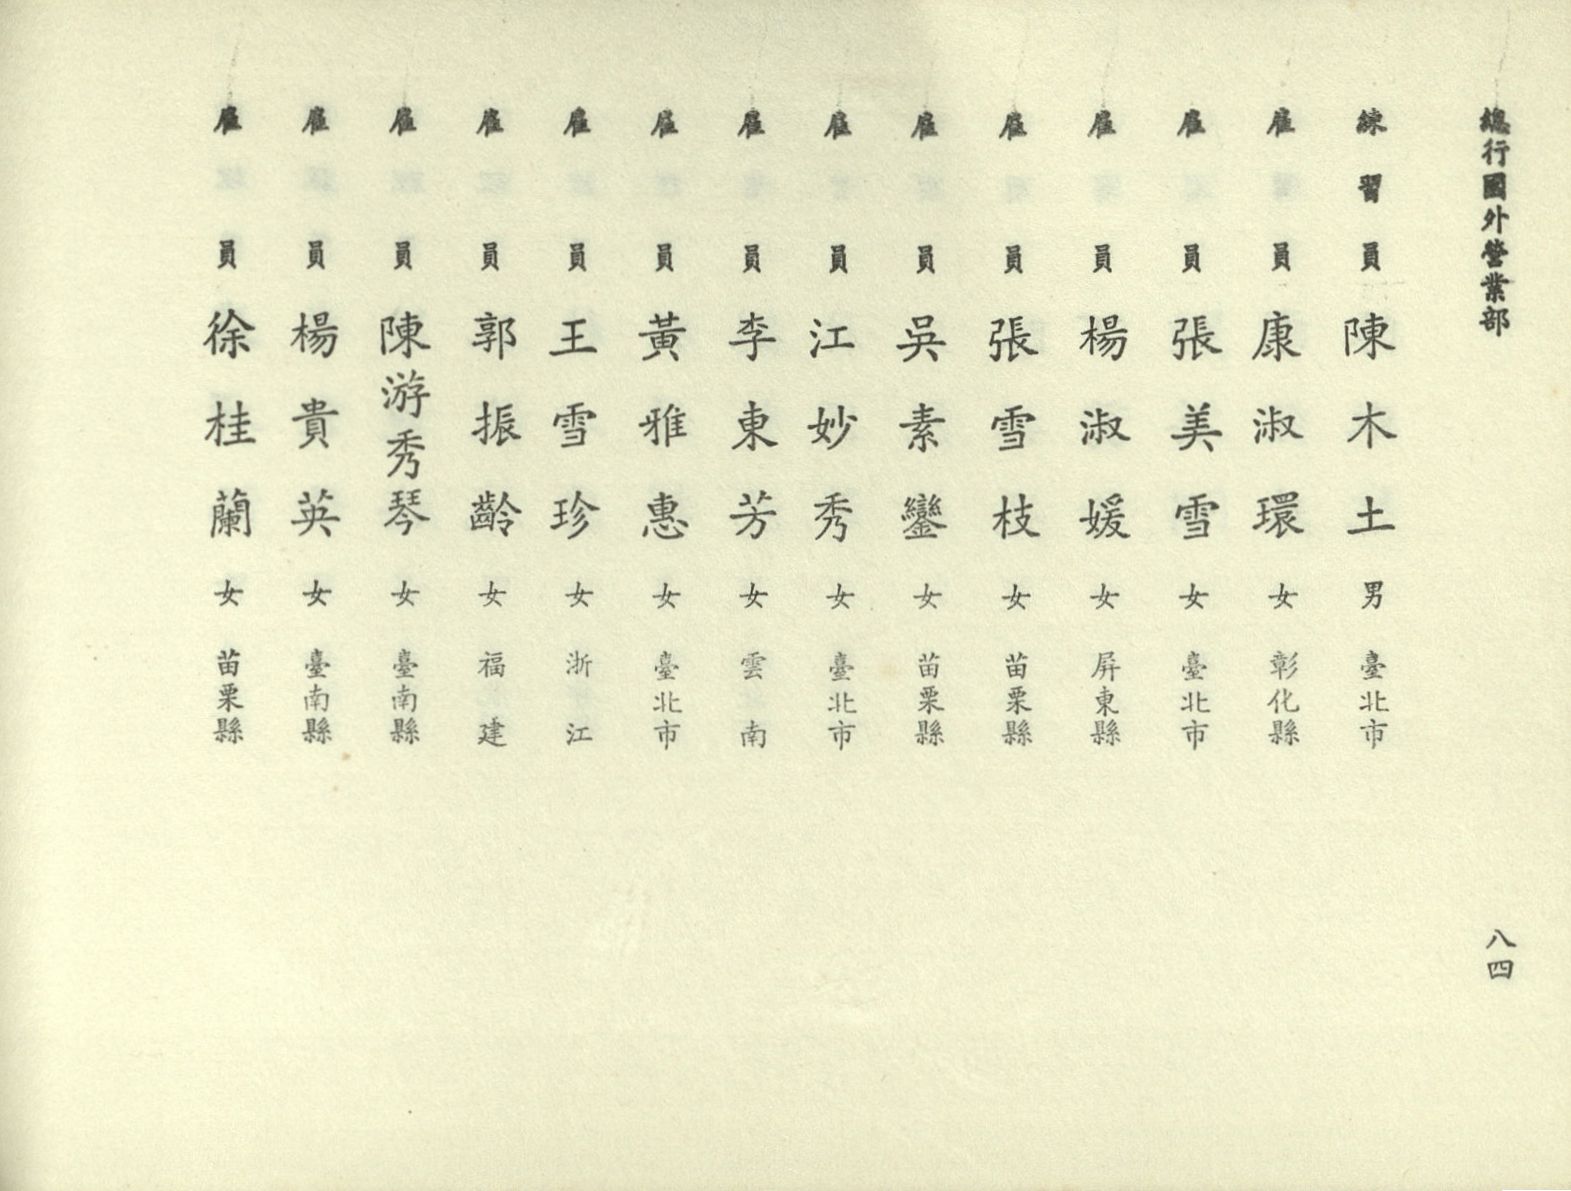 總行國外營業部
八四
練習員 陳木土 男 臺北市
雇員 康淑環 女 彰化縣
雇員 張美雪 女 臺北市
雇員 楊淑媛 女 屏東縣
雇員 張雪枝 女 苗栗縣
雇員 吳素鑾 女 苗栗縣
雇員 江妙秀 女 臺北市
雇員 李東芳 女 雲南
雇員 黃雅惠 女 臺北市
雇員 王雪珍 女 浙江
雇員 郭振齡 女 福建
雇員 陳游秀琴 女 臺南縣
雇員 楊貴英 女 臺南縣
雇員 徐桂蘭 女 苗栗縣